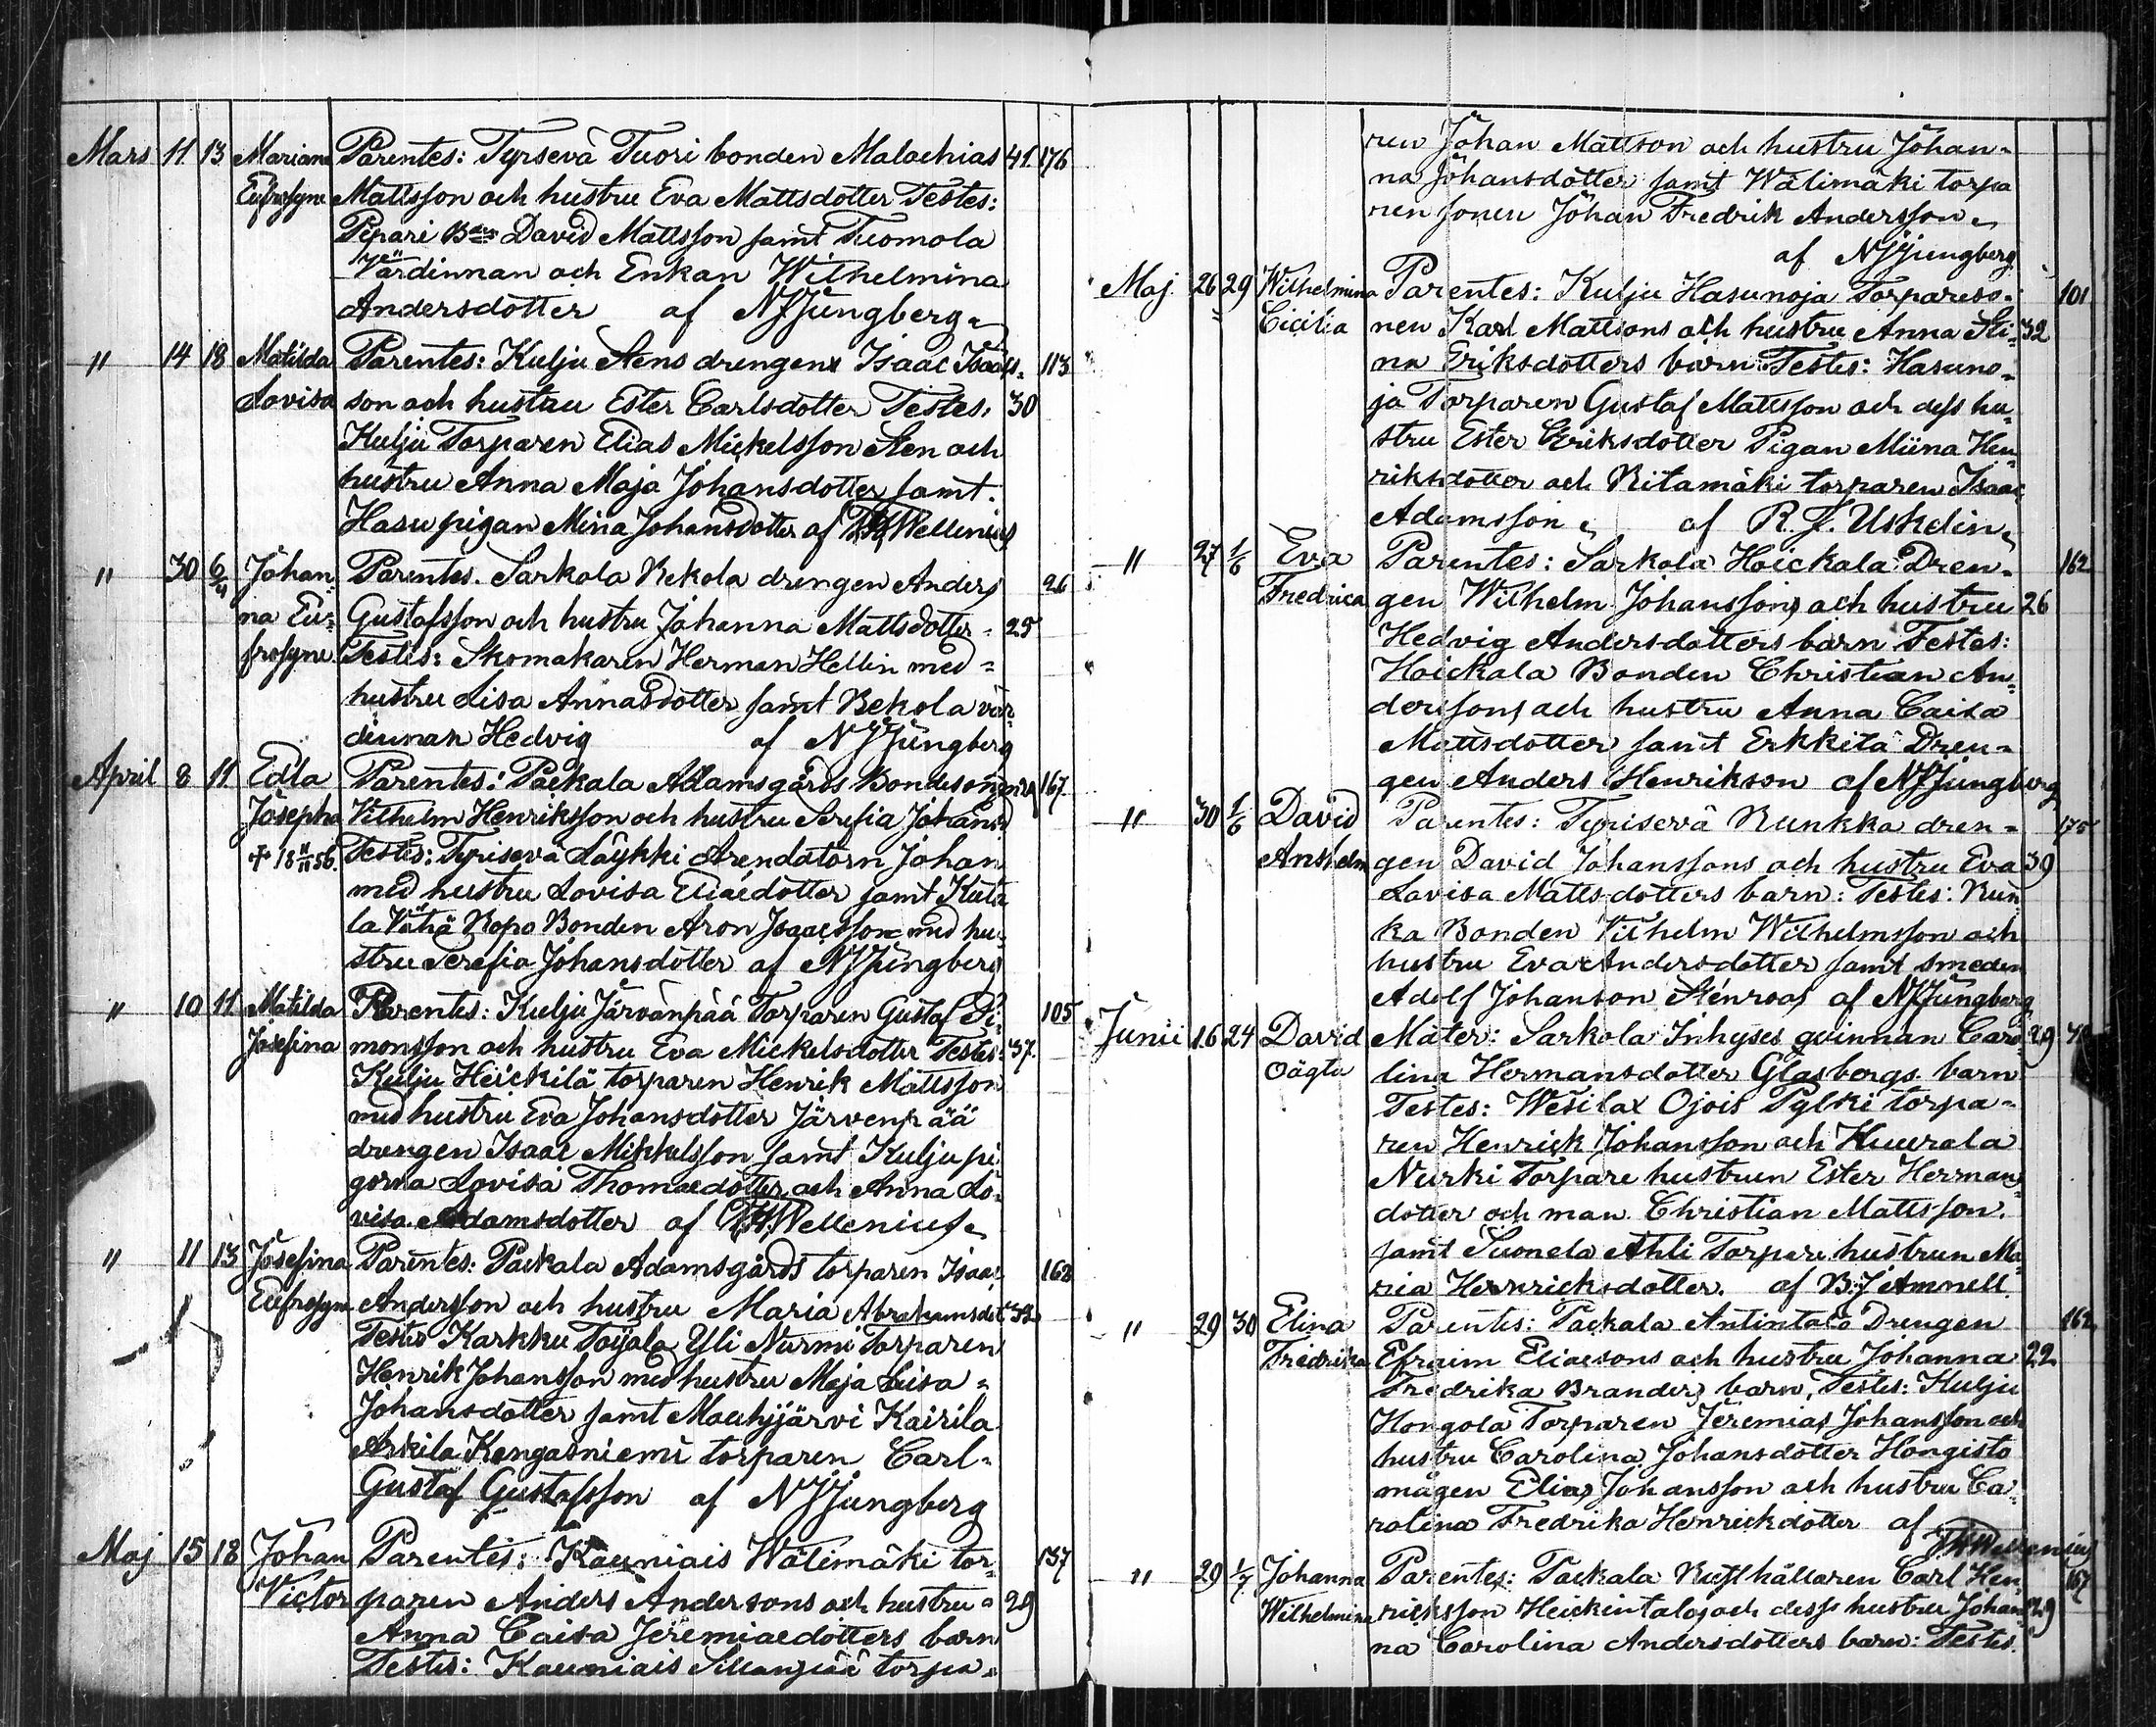 Mars 11 13 Mariana Parentes: Tyrsevä Tuori bonden Malachias 41 176
Eufrosyne Mattsson och hustru Eva Mattsdotter Testes:
Pepari Bden David Mattsson samt Tuomola
Värdinnan och Enkan Wilhelmina
Andersdotter af NJjungberg
" 14 18 Matilda Parentes: Kulju Stens drengen Isaac Isaacs- 113
Lovisa son och hustru Ester Carlsdotter Testes. 30
Kulju Torparen Elias Mickelsson Sten och
hustru Anna Maja Johansdotter samt.
Hasu pigan Mina Johansdotter af Wellenius
" 30 6/4 Johan- Parentes. Sarkola Rekola drengen Anders 26
na Eu- Gustafsson och hustru Johanna Mattsdotter 25
frosyne. Testes: Skomakaren Herman Hellin med
hustru Lisa Annasdotter samt Rekola vär-
dinnan Hedvig af NJjungberg
April 8 11 Edla Parentes: Packala Adamsgårds Bondesonen 167
Josepha Vilhelm Henriksson och hustru Serefia Johansd
+ 18 11/11 56. Testes: Tyrisevä Läykki Arendatorn Johan
med hustru Lovisa Eliaedotter samt Kuta
la Vähä Ropo Bonden Aron Isaacsson med hu-
stru Serefia Johansdotter af NJjungberg
" 10 11 Matilda Parentes: Kulju Järvänpää Torparen Gustaf Si- 105
Josefina monsson och hustru Eva Mickelsdotter Testes: 37.
Kulju Heickilä torparen Henrik Mattsson
med hustru Eva Johansdotter Järvenpää
drengen Isaac Mikkelsson samt Kulju pi
gorna Lovisa Thomaedotter och Anna Lo-
visa Adamsdotter af Wellenius
" 11 13 Josefina Parentes: Packala Adamsgårds torparen Isaac 162
Eufrosyne Andersson och hustru Maria Abrahamsdot 32
Testes Karkku Toijala Yli Nurmi Torparen
Henrik Johansson med hustru Maja Lisa
Johansdotter samt Mouhijärvi Kairila
Arkila Kengasniemi torparen Carl-
Gustaf Gustafsson af NJjungberg
Maj 15 18 Johan Parentes: Kauniais Wälimäki tor- 137
Victor paren Anders Andersons och hustru 29
Anna Caisa Jeremiaedotters barn
Testes: Kauniais torpa-
ren Johan Mattson och hustru Johan-
na Johansdotter samt Wälimäki torpa
ren sonen Johan Fredrik Andersson
af NJjungberg
Maj 26 29 Wilhelmina Parentes: Kulju Hasunoja Torpareso- 101
Cicilia nen Karl Mattsons och hustru Anna Sti- 32
na Eriksdotters barn Testes: Hasuno-
ja Torparen Gustaf Mattsson och dess hu-
stru Ester Eriksdotter Pigan Miina Hen-
riksdotter och Ritamäki torparen Isaac
Adamsson af R. J. Uskelin
" 27 1/6 Eva Parentes: Sarkola Hoickala Dren- 162
Fredrica gen Wilhelm Johanssons och hustru 26
Hedvig Andersdotters barn Testes:
Hoickala Bonden Christian An-
dersson och hustru Anna Caisa
Mattsdotter samt Erkkilä Dren-
gen Anders Henrikson af NJjungberg
" 30 1/6 David Parentes: Tyrisevä Runkka dren- 175
Anshelm gen David Johanssons och hustru Eva 39
Lovisa Mattsdotters barn: Testes: Run
ka Bonden Vilhelm Wilhelmsson och
hustru Eva Andersdotter samt smeden
Adolf Johanson Stenroos af NJjungberg
Junii 16 24 David Mater: Sarkola Inhyses qvinnan Caro- 29
Oägta lina Hermansdotter Glasbergs barn
Testes: Wesilax Ojois Pylsi torpa-
ren Henrick Johansson och Kuurala
Nurki Torpare hustrun Ester Herman-
dotter och man Christian Mattsson.
samt Suonela Ahli Torpare hustrun Ma
ria Henricksdotter. af B:J Amnell
" 29 30 Elina Parentes: Packala Antintalo Drengen 162
Fredrika Efraim Eliaesons och hustru Johanna 22
Fredrika Branders barn, Testes: Kulju
Hongola Torparen Jeremias Johansson och
hustru Carolina Johansdotter Hongisto
mågen Elias Johansson och hustru Ca-
rolina Fredrika Henrickdotter af
Wellenius
" 29 1/7 Johanna Parentes: Packala Rusthållaren Carl Hen- 167
Wilhelmina ricksson Heickintalo och dess hustru Johan 29
na Carolina Andersdotters barn: Testes.